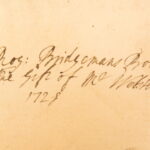 Rog: Bridgemans Bo
the Gift of Mr Webb
1728